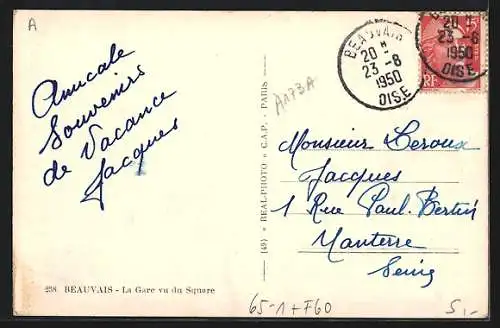 A
Amicale
Souvenirs
de Vacance
Jacques
238 BEAUVAIS - La Gare vu du Square
(49) REAL-PHOTO C.A.P. - PARIS
A173A
BEAUVAIS
20 H
23 - 8
1950
OISE
20
23 - 8
1950
OISE
RF
Monsieur Leroux
Jacques
1 Rue Paul. Bertin
Nanterre
Seine
65-1+F60
5,-